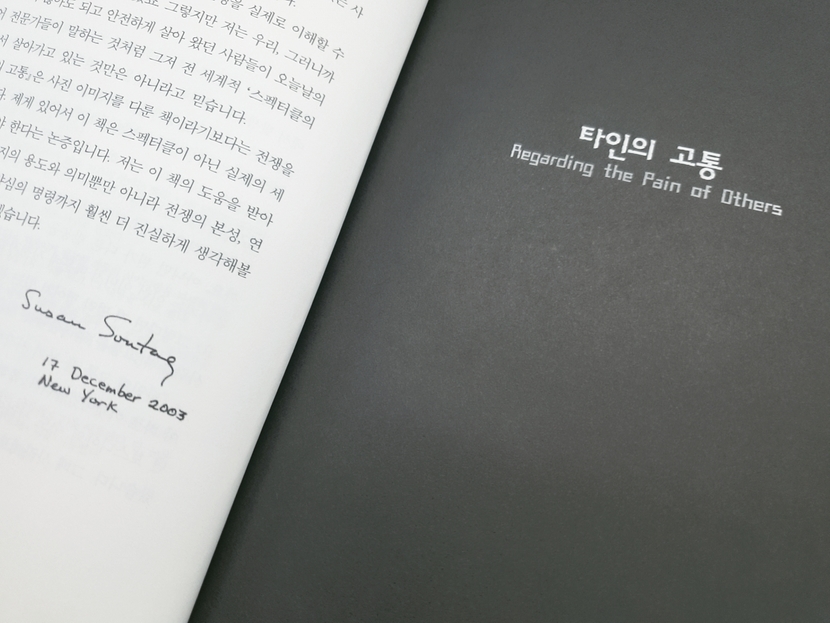 되고 안전하게 살아 왔던 사람들이 오늘날의
전문가들이 말하는 것처럼 그저 전 세계적 '스펙터클의
살아가고 있는 것만은 아니라고 믿습니다.
고통』은 사진 이미지를 다룬 책이라기보다는 전쟁을
제게 있어서 이 책은 스펙터클이 아닌 실제의 세
한다는 논증입니다. 저는 이 책의 도움을 받아
용도와 의미뿐만 아니라 전쟁의 본성, 연
명령까지 훨씬 더 진실하게 생각해볼
Susan Sontag
17 December 2003
New York
타인의 고통
Regarding the Pain of Others